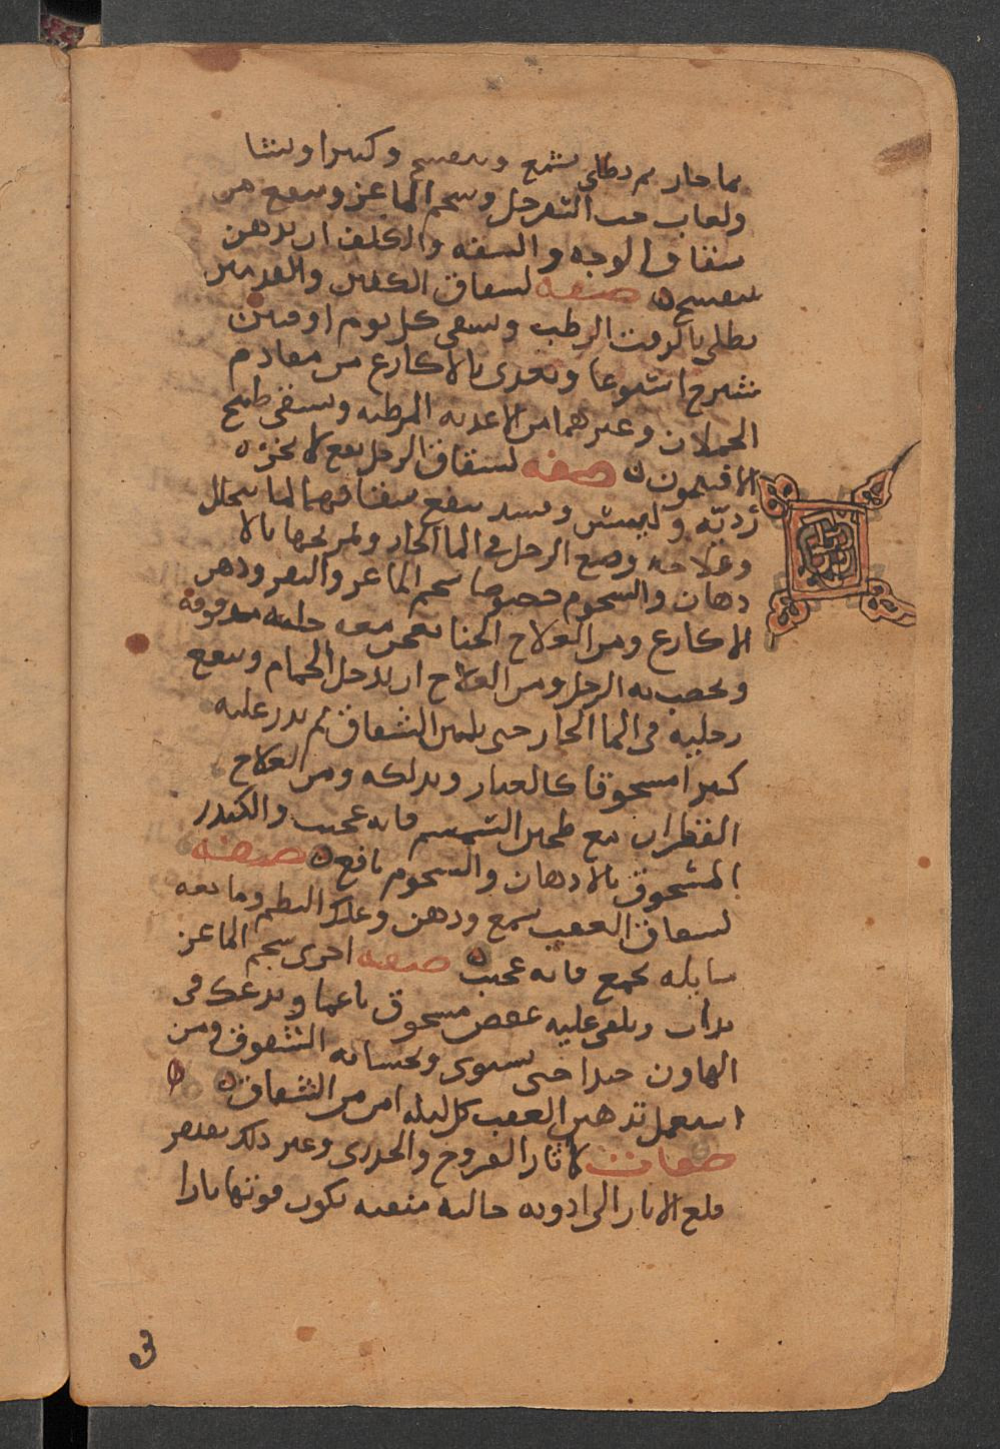 بما حار ثم يطلى بشمع وبنفسج وكثيرا ونشا
ولعاب حب السفرجل وشحم الماعز وينفع من
شقاق الوجه والشفه والكلف ان يدهن
ببنفسج صفه لشقاق الكفين والقدمين
يطلى بالزفت الرطب ويسقى كل يوم اوقيتين
شيرج اسبوعا ويغدى بالاكارع من مقادم
الحملان وغيرهما من الاغذيه المرطبه ويسقى طبيخ
الافتيمون صفه لشقاق الرجل يقع لابخره
رديه وليبس وقد ينفع شقاقهما لما يتحلل
وعلاجه وضع الرجل في الما الحار وتمريخها بالا
دهان والشحوم خصوصا شحم الماعز والبقر ودهن
الاكارع ومن العلاج الحنا يعجن معه حلبه مدقوقه
ويخضب به الرجل ومن العلاج ان يدخل الحمام وينقع
رجليه في الما الحار حتى يلين الشقاق ثم يذر عليه
كثيرا مسحوقا كالغبار ويدلكه ومن العلاج
القطران مع طحين السمسم فانه عجيب والكندر
المسحوق بالادهان والشحوم نافع صفه
لشقاق العقب شمع ودهن وعلك البطم وما يعه
سايله يجمع فانه عجيب صفه اخرى شحم الماعز
يذاب ويلقى عليه عفص مسحوق ناعما ويدعك في
الهاون جيدا حتى يستوى ويحشا به الشقوق ومن
استعمل تدهين العقب كل ليله امن من الشقاق
صفات لاثار القروح والجدرى وغير ذلك يفتقر
قلع الاثار الى ادويه جاليه منقيه تكون قوتها بازا